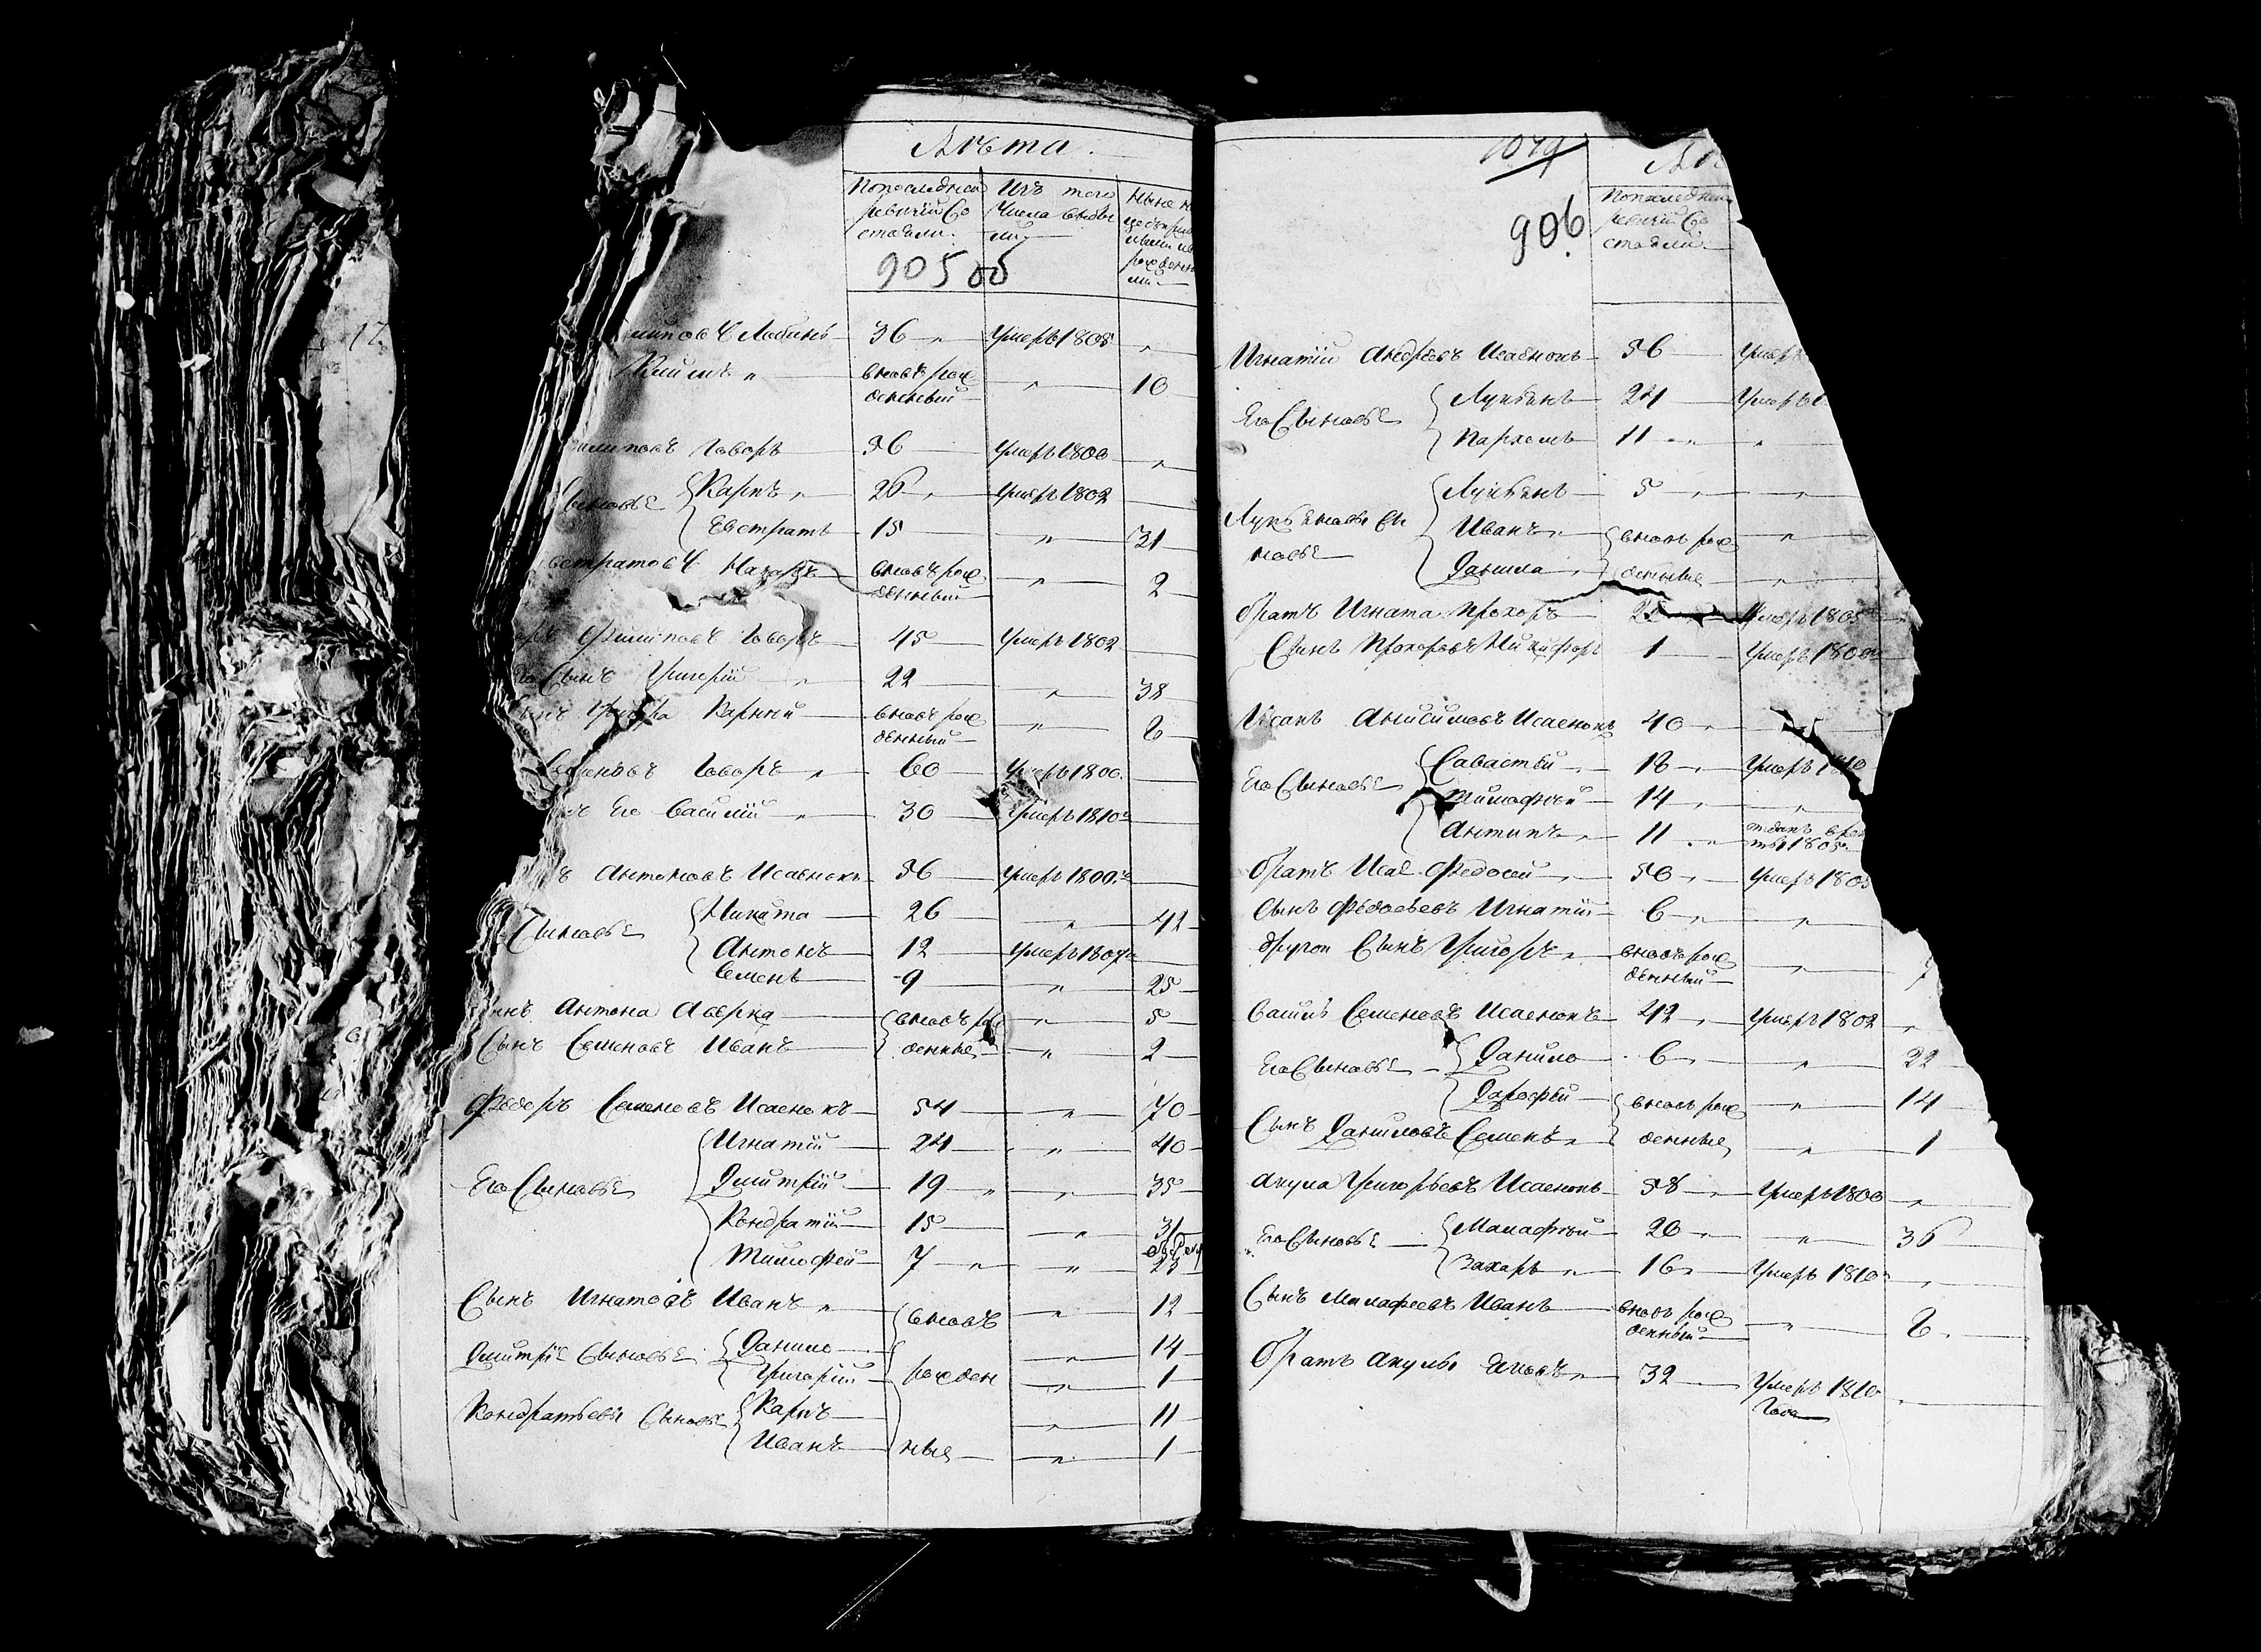 Лѣта.
Попоследней ревизіи Состояли.
Изъ того Числа выбыли
Ныне н
905 об
36 умеръ 1808
Климъ вновь рожденный 10
Говоръ 56 умеръ 1800
Карпъ 26 умеръ 1802
Евстратъ 15 31
Назаръ вновь рожденный 2
Филиповъ Говоръ 45 умеръ 1802
Сынъ Григорій 22 38
Карпей вновь рожденный 8
Говоръ 60 умеръ 1800
Его Василий 30 умеръ 1810
Антоновъ Исаенокъ 56 умеръ 1800
Сыновьѣ Микита 26 42
Антонъ 12 умеръ 1807
Семенъ 9 25
Антона Аверка вновь рожденные 5
Сынъ Семеновъ Иванъ 2
Федоръ Семеновъ Исаенокъ 54 70
Его Сыновьѣ Игнатій 24 40
Дмитрій 19 35
Кондратій 15 31
Тимофей 7 23
Сынъ Игнатовъ Иванъ вновь 12
Дмитріе Сыновьѣ Данило 14
Григорій рожден 1
Кондратьевы Сыновьѣ Карпъ 11
Иванъ ные 1
1049
906.
Попоследней ревизіи Состояли.
Игнатій Андреевъ Исаенокъ 56 умеръ
Его Сыновьѣ Лукьянъ 24 умеръ
Пархомъ 11
Лукьяновы Сыновьѣ Лукьянъ 5
Иванъ вновь рож
Данила денные
братъ Игната Прохоръ 25 умеръ 1805
Сынъ Прохоровъ Никифоръ 1 умеръ 1800
Исакъ Анисимовъ Исаенокъ 40
Его Сыновьѣ Савастѣй 18 умеръ 1810
Тимофѣй 14
Антипъ 11 отданъ в рек 1805
братъ Исае Федосей 50 умеръ 180
Сынъ Федосѣевъ Игнатій 6
другой Сынъ Григоръ вновь рожденный 7
Семеновъ Исаенокъ 42 умеръ 1802
Его Сыновьѣ Данило 6 22
Дарофѣй вновь рож 14
Сынъ Даниловъ Семенъ денные 1
Акула Григорьевъ Исаенокъ 58 умеръ 1800
Его Сыновьѣ Малафѣй 20 36
Захаръ 16 умеръ 1810
Сынъ Малафеевъ Иванъ вновь рожденный 8
братъ Акулы Яковъ 32 умеръ 1810 года